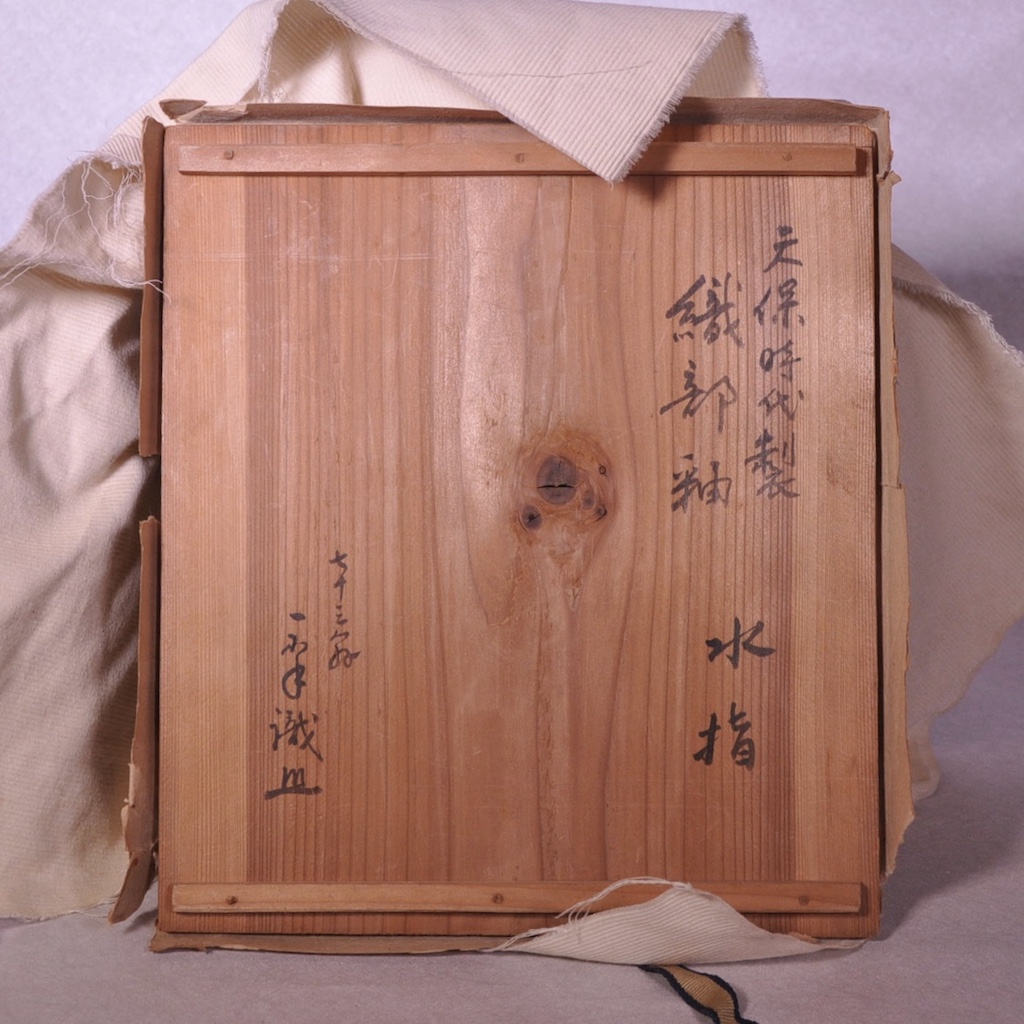 天保時代製
織部釉
水指
七十三翁
識